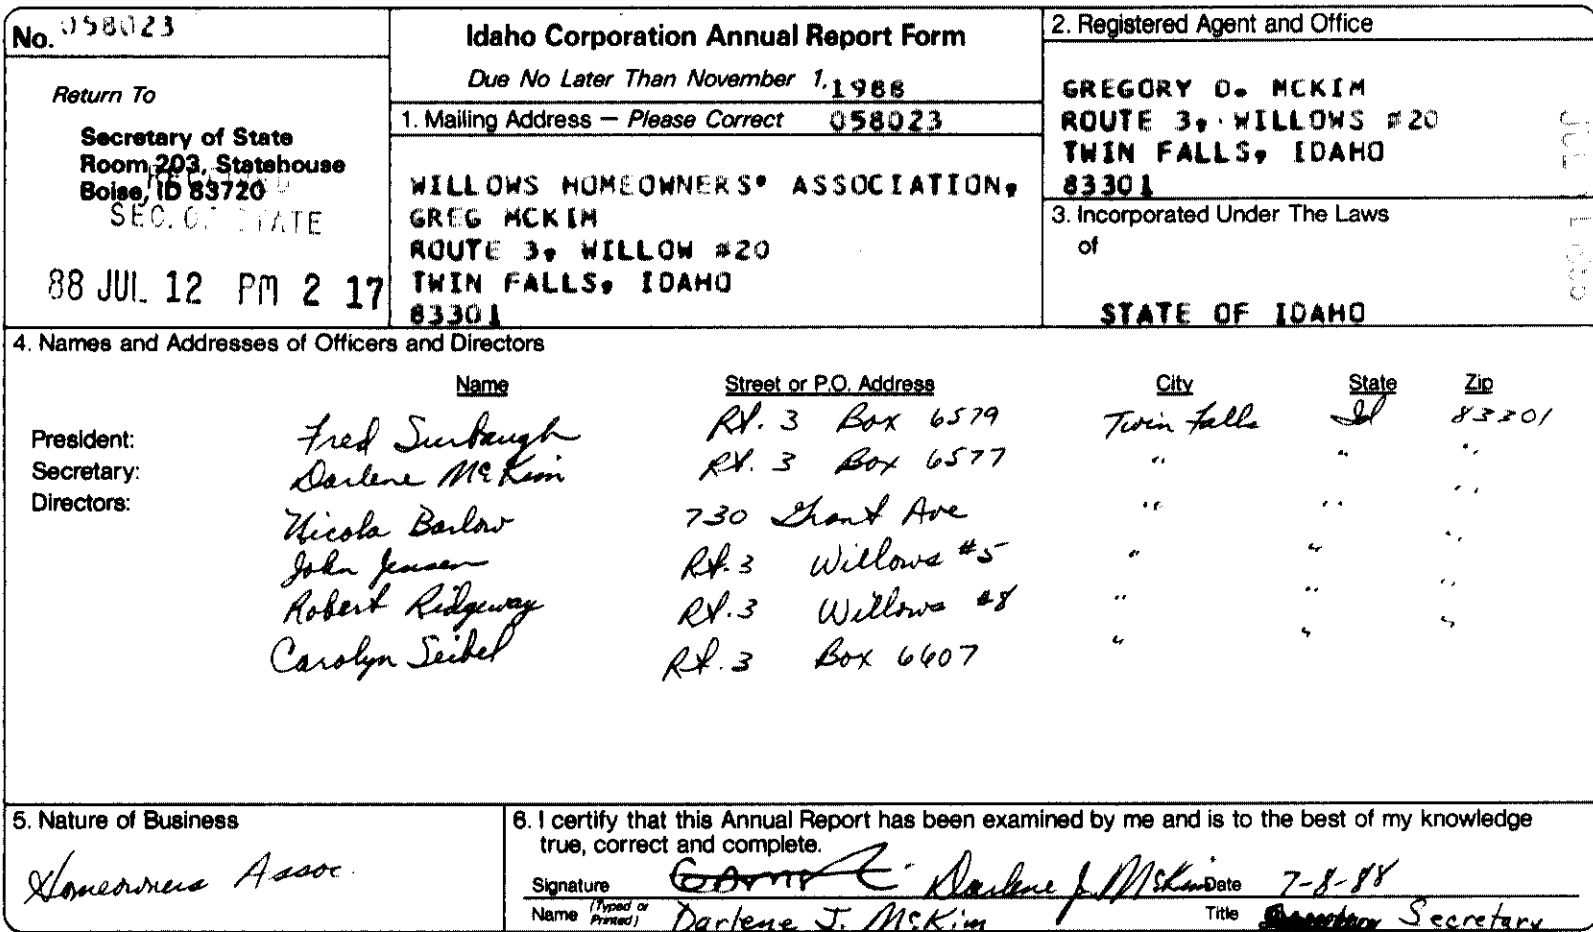 No. 058023
Return To
Secretary of State
Room 203, Statehouse
Boise, ID 83720
SEC. OF STATE
88 JUL 12 PM 2 17
Idaho Corporation Annual Report Form
Due No Later Than November 1, 1988
1. Mailing Address — Please Correct 058023
WILLOWS HOMEOWNERS' ASSOCIATION,
GREG MCKIM
ROUTE 3, WILLOW #20
TWIN FALLS, IDAHO
83301
2. Registered Agent and Office
GREGORY D. MCKIM
ROUTE 3, WILLOWS #20
TWIN FALLS, IDAHO
83301
3. Incorporated Under The Laws
of
STATE OF IDAHO
4. Names and Addresses of Officers and Directors
Name Street or P.O. Address City State Zip
President: Fred Surbaugh Rt. 3 Box 6579 Twin Falls Id 83301
Secretary: Darlene McKim Rt. 3 Box 6577 " " "
Directors: Nicola Barlow 730 Grant Ave " " "
John Jensen Rt. 3 Willows #5 " " "
Robert Ridgeway Rt. 3 Willows #8 " " "
Carolyn Seibel Rt. 3 Box 6607 " " "
5. Nature of Business
Homeowners Assoc.
6. I certify that this Annual Report has been examined by me and is to the best of my knowledge
true, correct and complete.
Signature Darlene J. McKim Date 7-8-88
Name (Typed or Printed) Darlene J. McKim Title Secretary